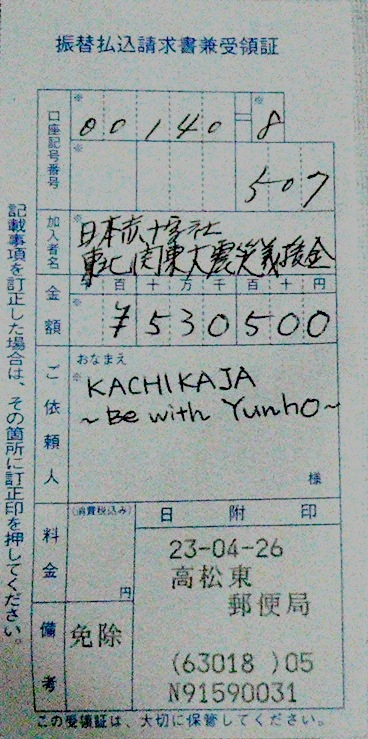 振替払込請求書兼受領証
口座記号番号
※
00140
※
8
507
加入者名
※
日本赤十字社
東北関東大震災義援金
金額
千百十万千百十円
※
¥530500
ご依頼人
おなまえ
※
KACHIKAJA
~Be with Yunho~
様
料金
(消費税込み)
円
日附印
23-04-26
高松東
郵便局
(63018 )05
N91590031
備考
免除
この受領証は、大切に保管してください。
記載事項を訂正した場合は、その箇所に訂正印を押してください。